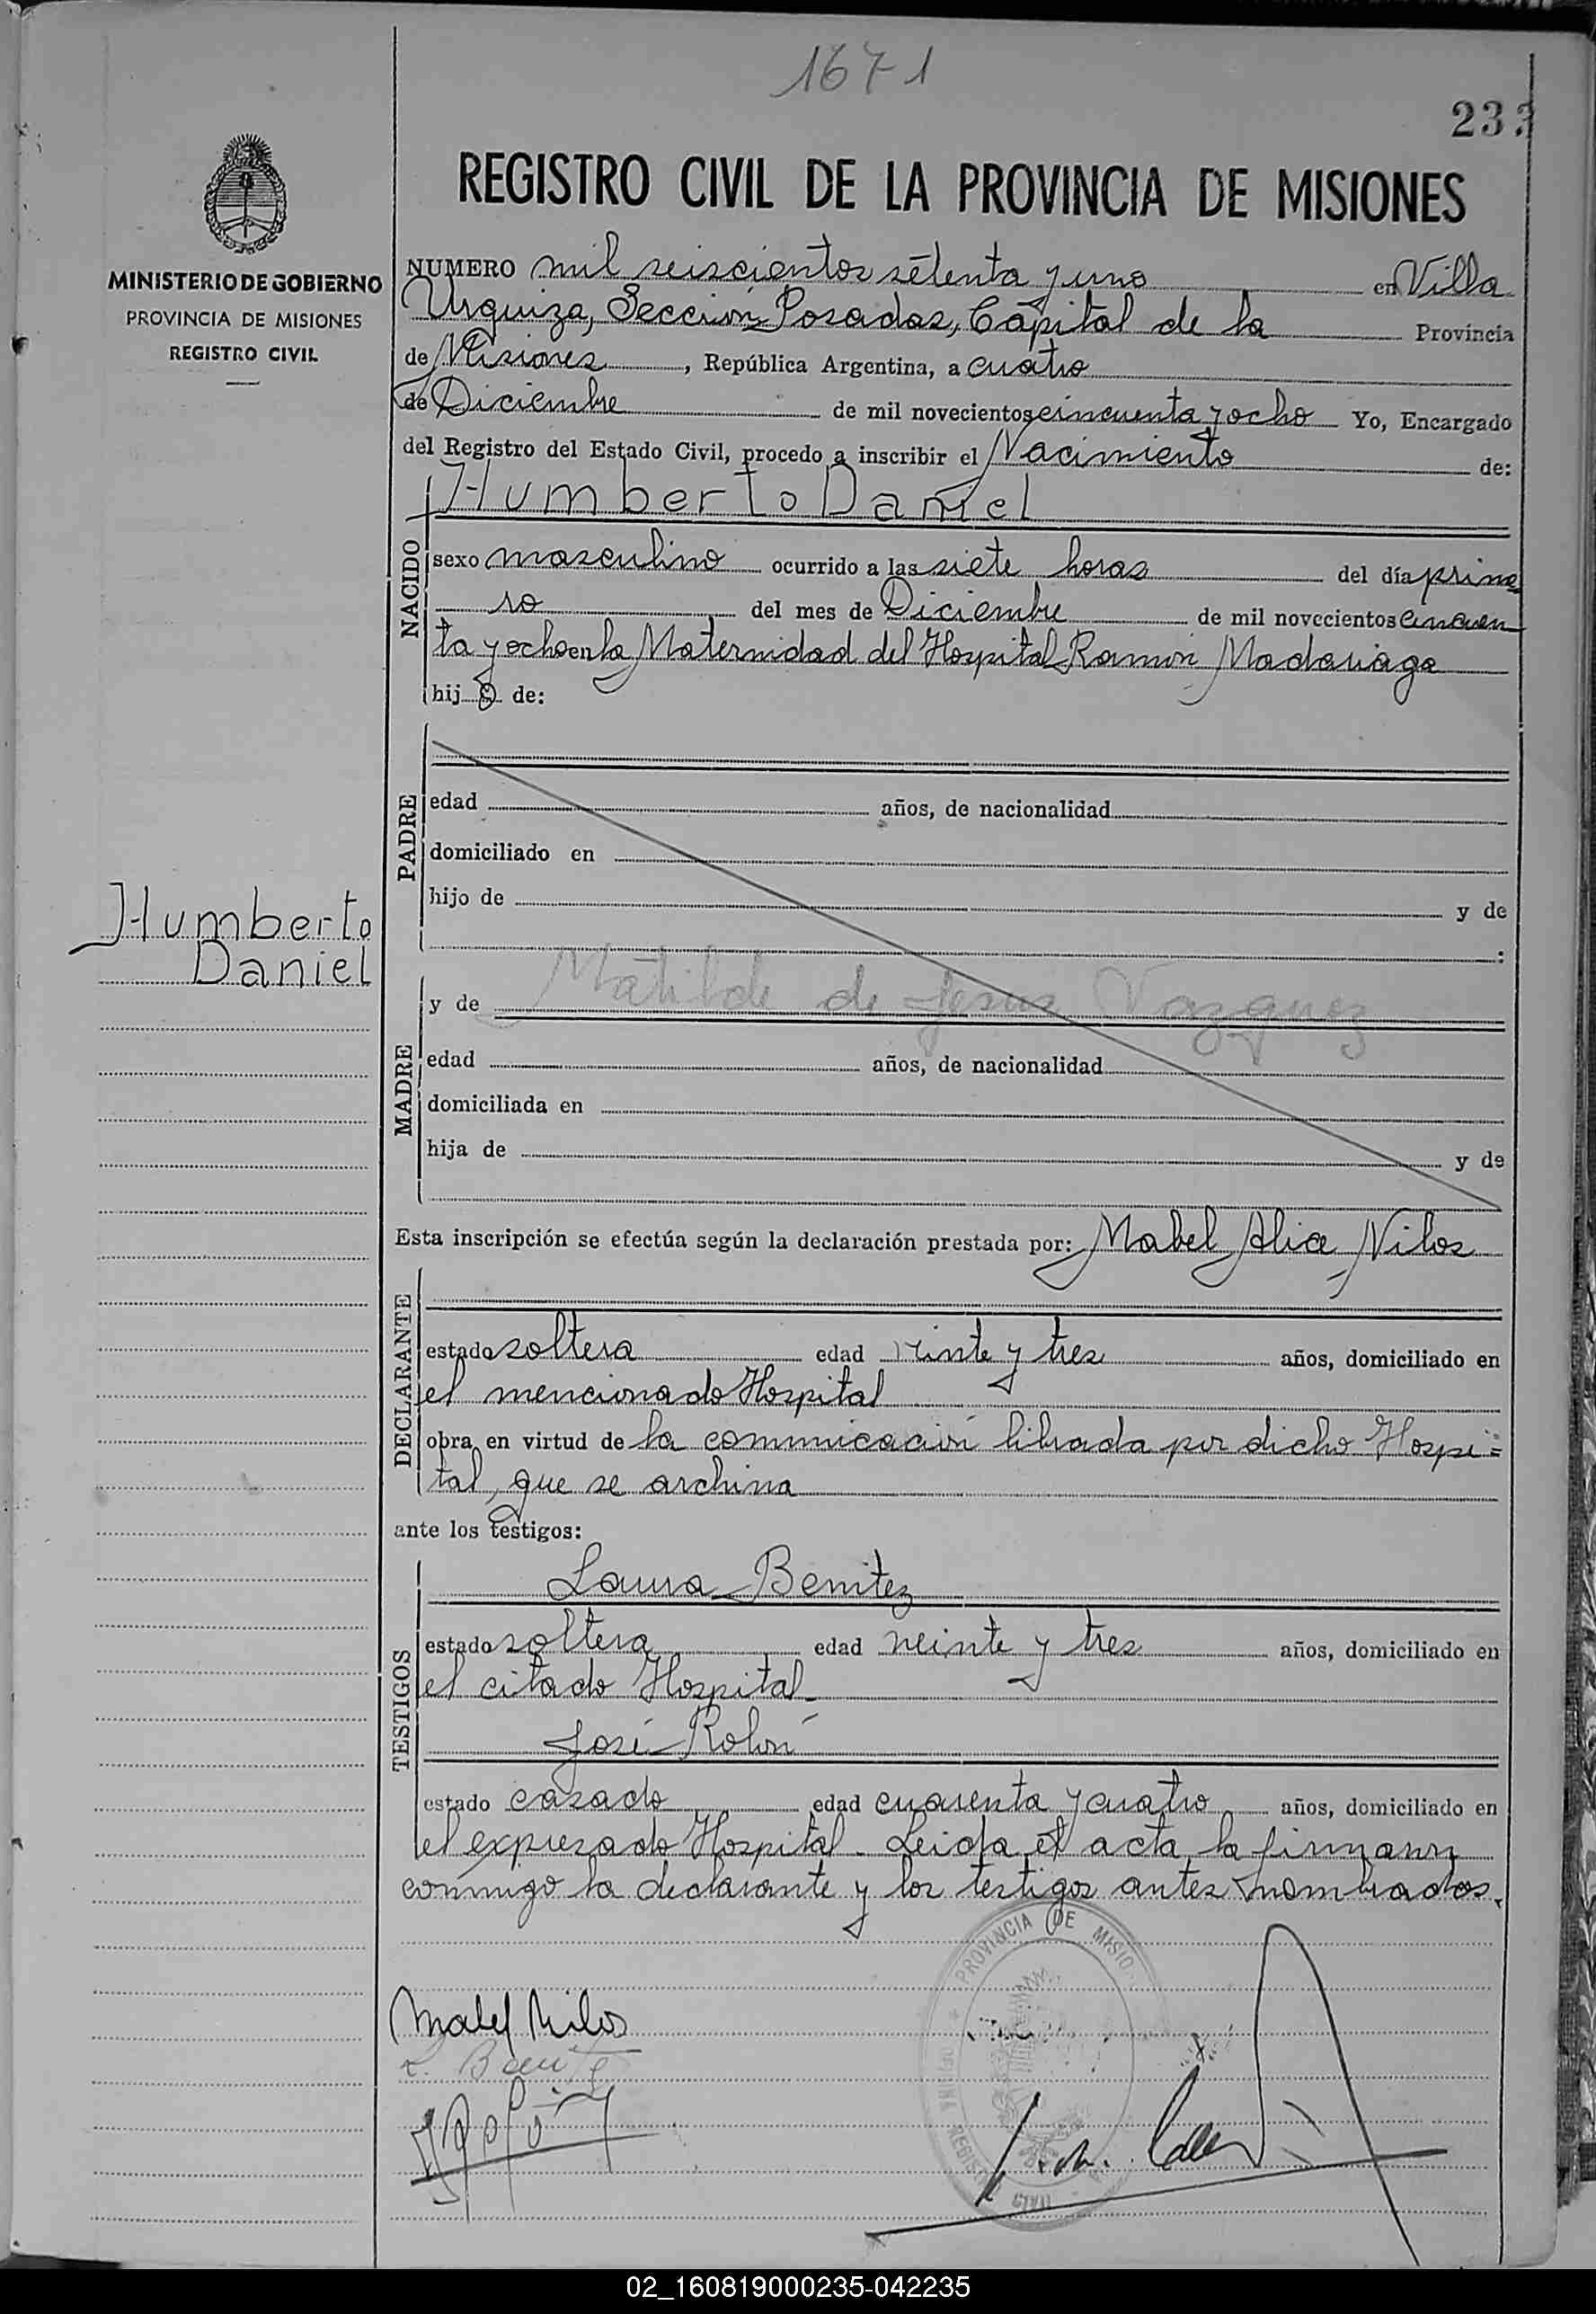 1671
233
REGISTRO CIVIL DE LA PROVINCIA DE MISIONES
MINISTERIO DE GOBIERNO
PROVINCIA DE MISIONES
REGISTRO CIVIL
NUMERO mil seiscientos setenta y uno en Villa
Urquiza, Sección Posadas, Capital de la Provincia
de Misiones, República Argentina, a cuatro
de Diciembre de mil novecientos cincuenta y ocho Yo, Encargado
del Registro del Estado Civil, procedo a inscribir el Nacimiento de:
Humberto Daniel
NACIDO
sexo masculino ocurrido a las siete horas del día prime
ro del mes de Diciembre de mil novecientos cincuen
ta y ocho en la Maternidad del Hospital Ramón Madariaga
hij o de:
PADRE
edad años, de nacionalidad
domiciliado en
hijo de y de
:
Humberto
Daniel
MADRE
y de Matilde de Jesus Vazquez
edad años, de nacionalidad
domiciliada en
hija de y de
Esta inscripción se efectúa según la declaración prestada por: Mabel Alice Nilos
DECLARANTE
estado soltera edad veinte y tres años, domiciliado en
el mencionado Hospital
obra en virtud de la comunicación librada por dicho Hospi=
tal, que se archiva
ante los testigos:
TESTIGOS
Laura Benitez
estado soltera edad veinte y tres años, domiciliado en
el citado Hospital
José Rolón
estado casado edad cuarenta y cuatro años, domiciliado en
el expresado Hospital. Leida el acta la firman
conmigo la declarante y los testigos antes nombrados.
PROVINCIA DE MISIO
Mabel Nilos
L. Benitez
02_160819000235-042235